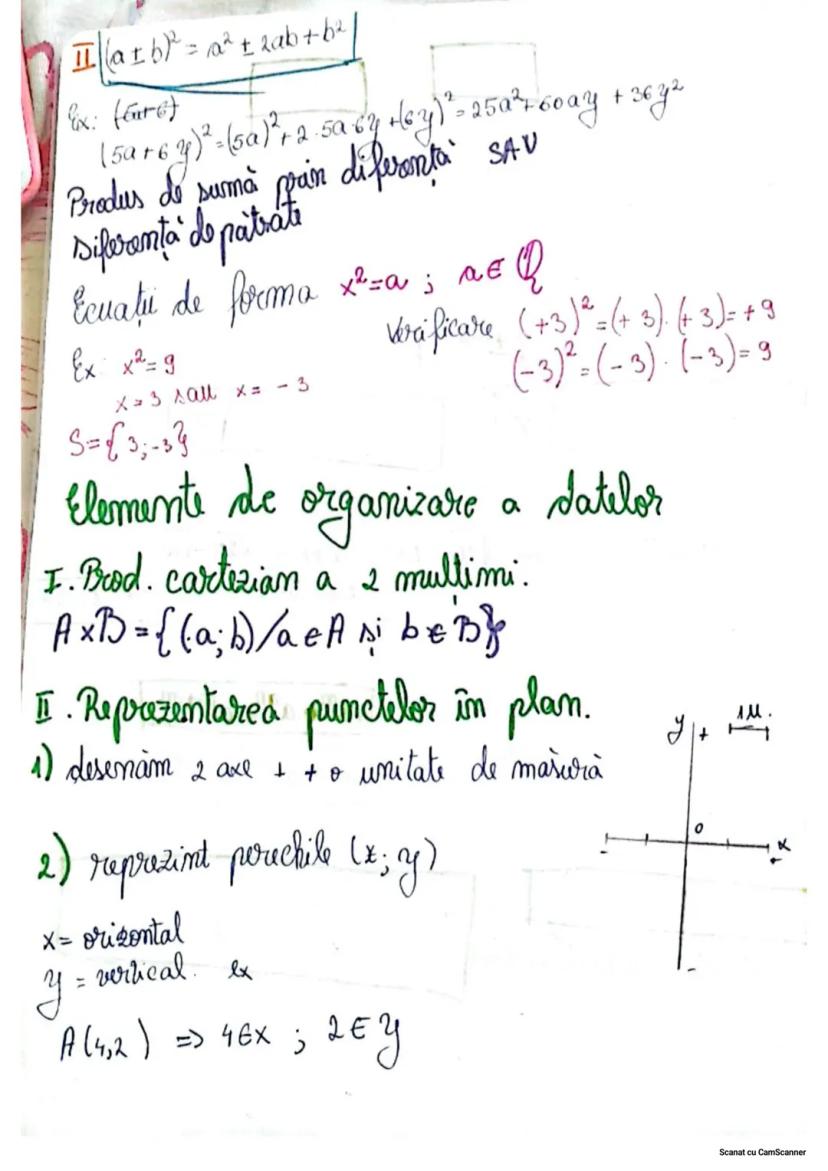 II (a ± b)² = a² ± 2ab + b²
Ex:
(5a + 6y)² = (5a)² + 2·5a·6y + (6y)² = 25a² + 60ay + 36y²
Produs de sumă prin diferență SAU
Diferență de pătrate
Ecuații de forma x²=a ; a∈ℚ
Verificare (+3)² = (+3)·(+3) = +9
(-3)² = (-3)·(-3) = 9
Ex x² = 9
x = 3 sau x = -3
S={3;-3}
Elemente de organizare a datelor
I. Prod. cartezian a 2 mulțimi.
A×B = {(a;b)/a∈A și b∈B}
II. Reprezentarea punctelor în plan.
1) desenăm 2 axe ⊥ + o unitate de măsură
y + 1u.
0
x
2) reprezint perechile (x;y)
x = orizontal
y = vertical. ex
A(4,2) => 4∈x ; 2∈y
Scanat cu CamScanner